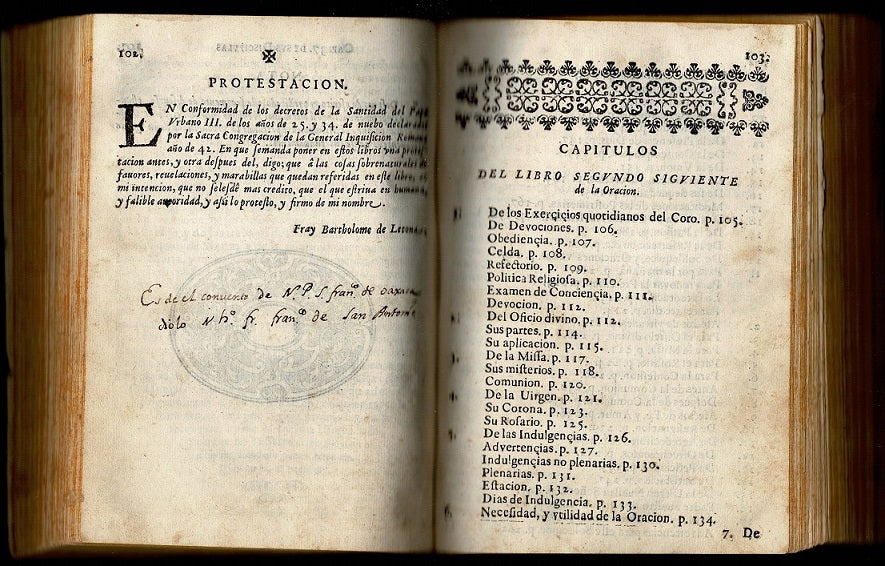 102.
PROTESTACION.
EN Conformidad de los decretos de la Santidad del Papa
Vrbano III. de los años de 25. y 34. de nuebo declarado
por la Sacra Congregacion de la General Inquisicion Romana
año de 42. En que semanda poner en estos libros vna protes-
tacion antes, y otra despues del, digo; que â las cosas sobrenaturales de
fauores, reuelaciones, y marabillas que quedan referidas en este libro, es
mi intencion, que no selesdè mas credito, que el que estriua en humana,
y falible autoridad, y assi lo protesto, y firmo de mi nombre.
Fray Bartholome de Letona
Es de el convento de N. P. S. franco de oaxaca
diolo N ho. fr. franco de San Antonio
103.
CAPITULOS
DEL LIBRO SEGVNDO SIGVIENTE
de la Oracion.
De los Exerçiçios quotidianos del Coro. p. 105.
De Devociones. p. 106.
Obediençia. p. 107.
Celda. p. 108.
Refectorio. p. 109.
Politica Religiosa. p. 110.
Examen de Conciençia. p. 111.
Devocion. p. 112.
Del Oficio divino. p. 112.
Sus partes. p. 114.
Su aplicacion. p. 115.
De la Missa. p. 117.
Sus misterios. p. 118.
Comunion. p. 120.
De la Uirgen. p. 121.
Su Corona. p. 123.
Su Rosario. p. 125.
De las Indulgençias. p. 126.
Advertençias. p. 127.
Indulgençias no plenarias. p. 130.
Plenarias. p. 131.
Estacion. p. 132.
Dias de Indulgencia. p. 133.
Necesidad, y vtilidad de la Oracion. p. 134.
7. De